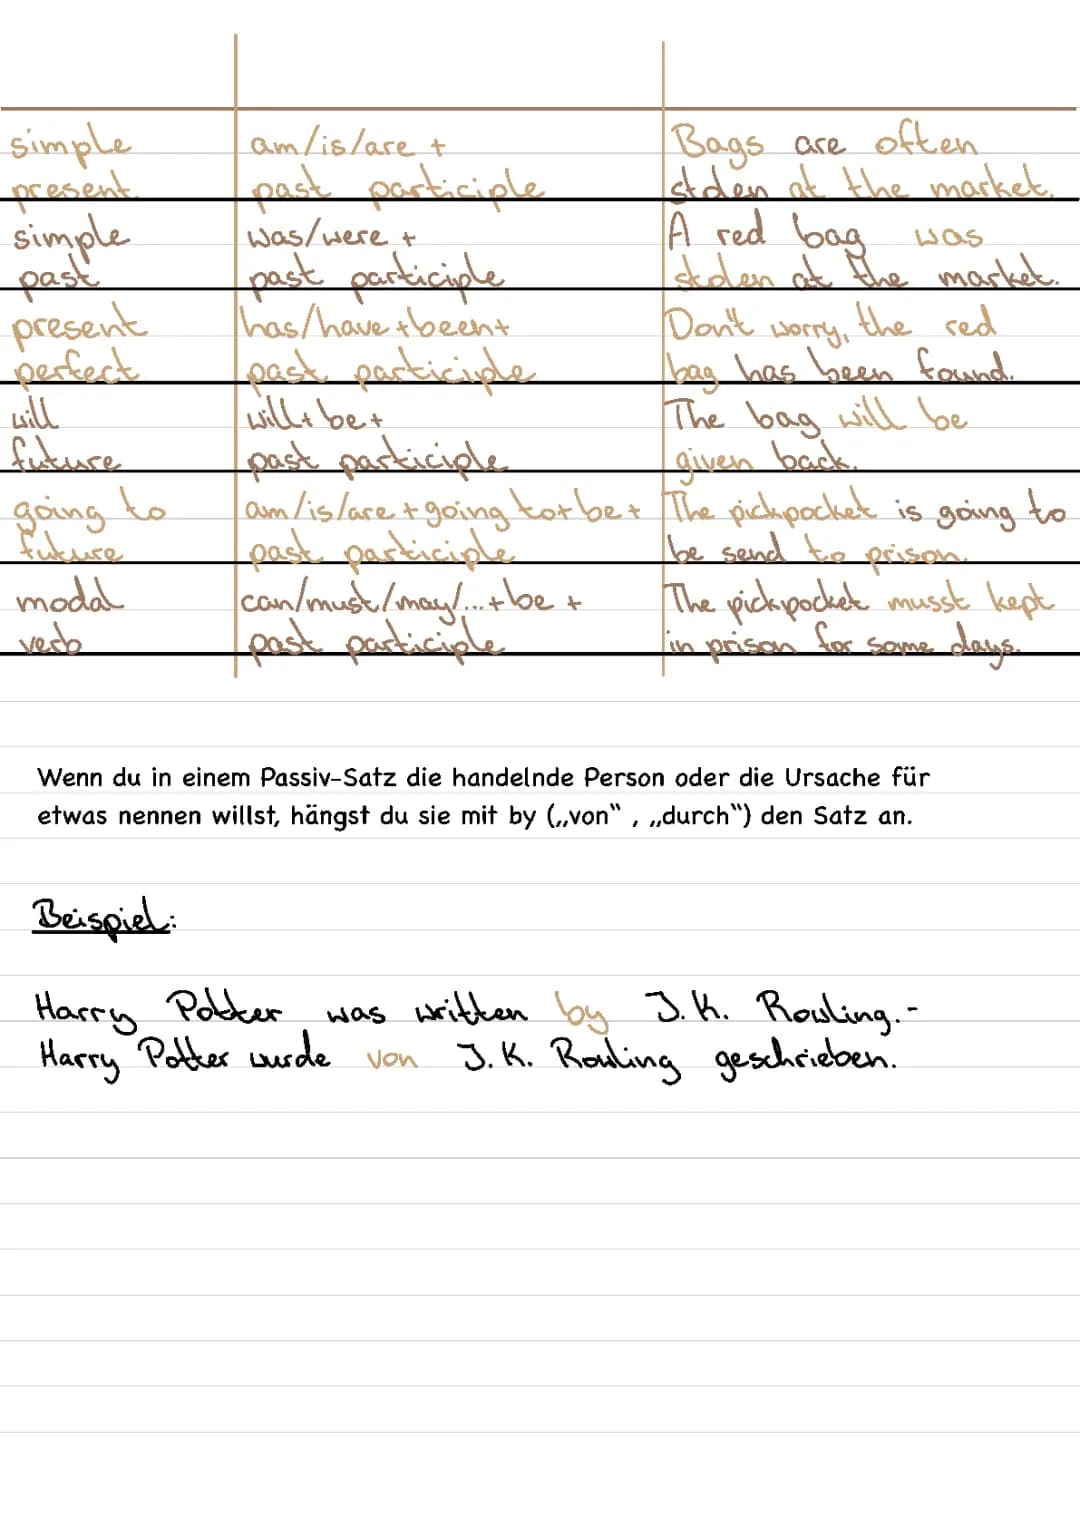 simple am/is/are + Bags are often
present. past participle stolen at the market.
simple was/were + A red bag was
past past participle stolen at the market.
present has/have+been+ Don't worry, the red
perfect past participle bag has been found.
will will+ be+ The bag will be
future past participle given back.
going to am/is/are+going to+be+ The pickpocket is going to
future past participle be send to prison.
modal can/must/may/...+be + The pickpocket musst kept
verb past participle in prison for some days.
Wenn du in einem Passiv-Satz die handelnde Person oder die Ursache für
etwas nennen willst, hängst du sie mit by („von“ , „durch“) den Satz an.
Beispiel:
Harry Potter was written by J.K. Rowling.-
Harry Potter wurde von J.K. Rowling geschrieben.